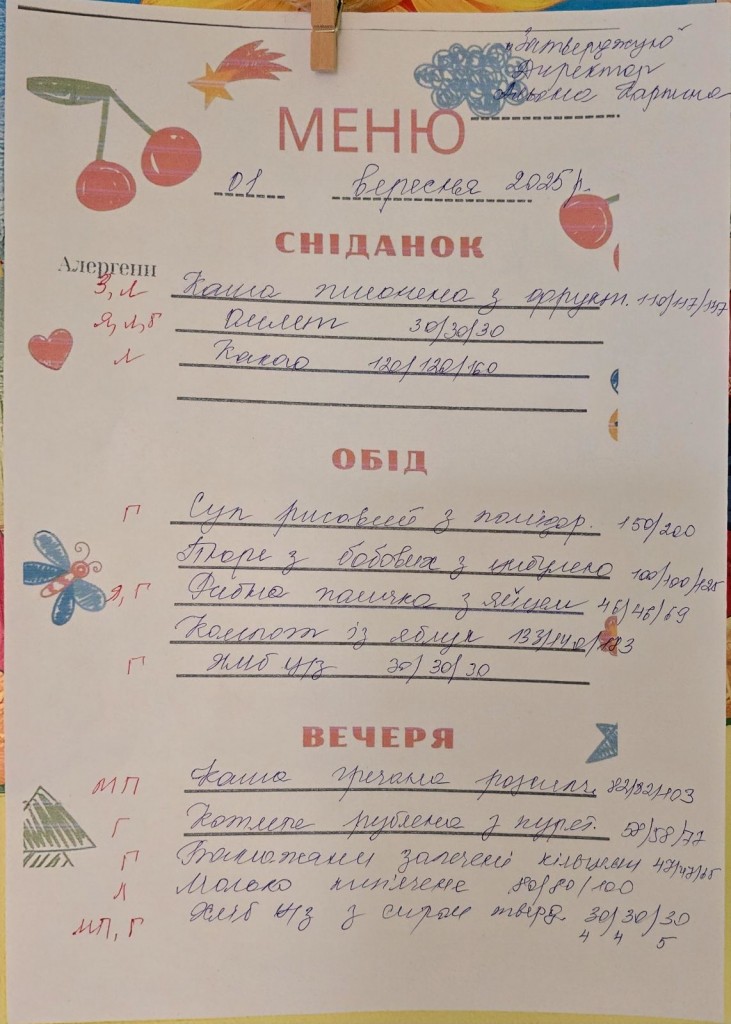 "Затверджую"
Директор
Альона
МЕНЮ
01 вересня 2025 р.
СНІДАНОК
Алергени
З, Л Каша пшонена з фрукт. 110/147/197
Я, Л, Б Омлет 30/30/30
Л Какао 120/120/160
ОБІД
Г Суп рисовий з помідор. 150/200
Пюре з бобових з цибулею 100/100/125
Я, Г Рибна паличка з яйцем 46/46/69
Компот із яблук 133/140/183
Г Хліб ц/з 30/30/30
ВЕЧЕРЯ
МП Каша гречана розсипч. 82/82/103
Г Котлета рублена з курят. 58/58/77
Г Баклажани запечені кільцями 47/47/65
Л Молоко кип'ячене 80/80/100
МП, Г Хліб ц/з з сиром тверд. 30/30/30
4 4 5